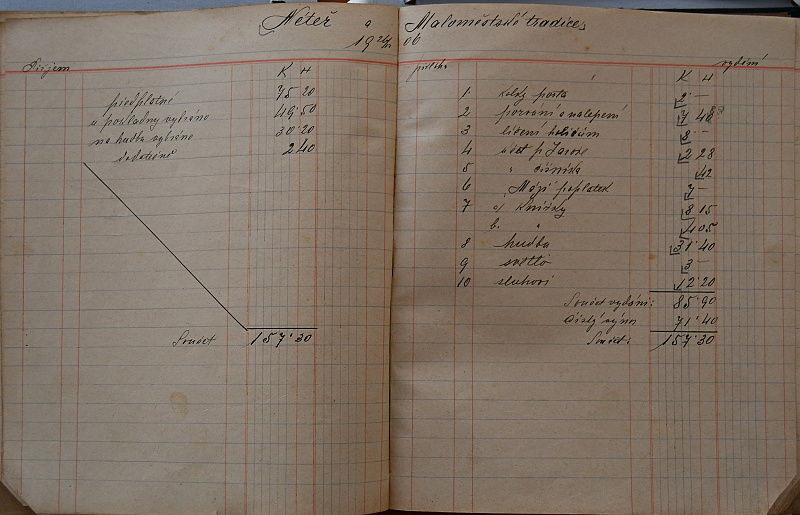 Neteř a Maloměstské tradice
19 26/12 06
Příjem
K H
předplatné 75·20
u pokladny vybráno 49·50
na hudbu vybráno 30·20
dodatečně 2 40
Součet 157·30
položka vydání
K H
1 kolky, porto 2 —
2 pozvání a nalepení 7 48
3 líčení holičům 8 —
4 účet p. Jaroše 2 28
5 " 42
6 poplatek 7 —
7 a) knížky 8 15
b. " 4 05
8 hudba 31·40
9 světlo 3 —
10 sluhovi 12·20
Součet vydání: 85·90
čistý výnos 71·40
Součet: 157·30